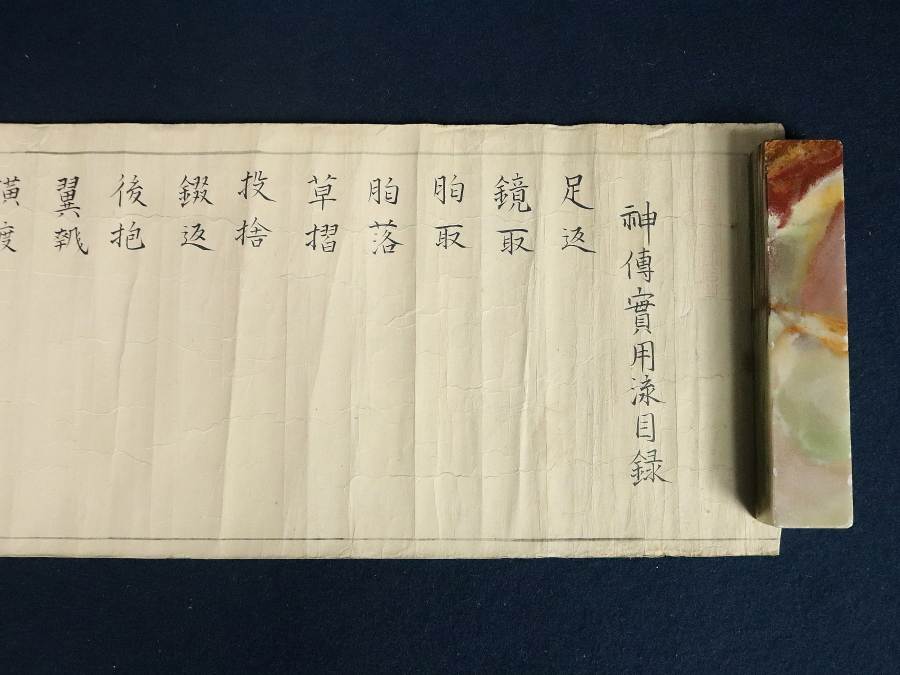 神傳實用流目録
足返
鏡取
胎取
胎落
草摺
投捨
錣返
後抱
翼
横度